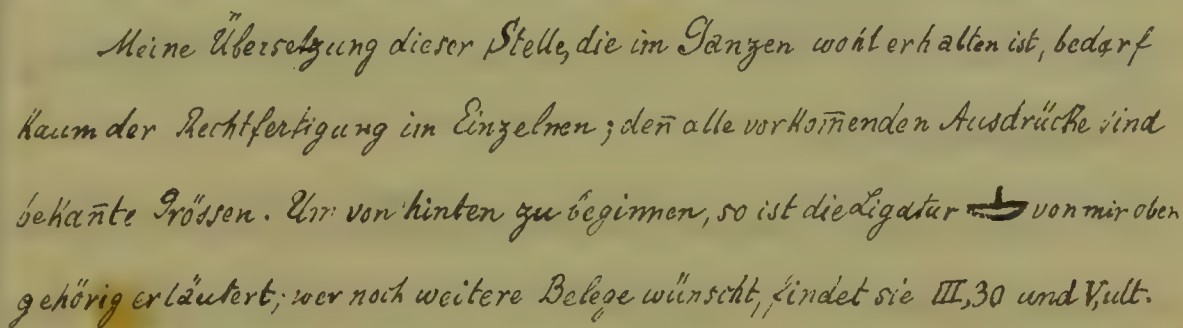 Meine Übersetzung dieser Stelle, die im Ganzen wohl erhalten ist, bedarf
kaum der Rechtfertigung im Einzelnen; den̄ alle vorkom̄enden Ausdrücke sind
bekan̄te Grössen. Um von hinten zu beginnen, so ist die Ligatur von mir oben
gehörig erläutert; wer noch weitere Belege wünscht, findet sie III,30 und V,ult.